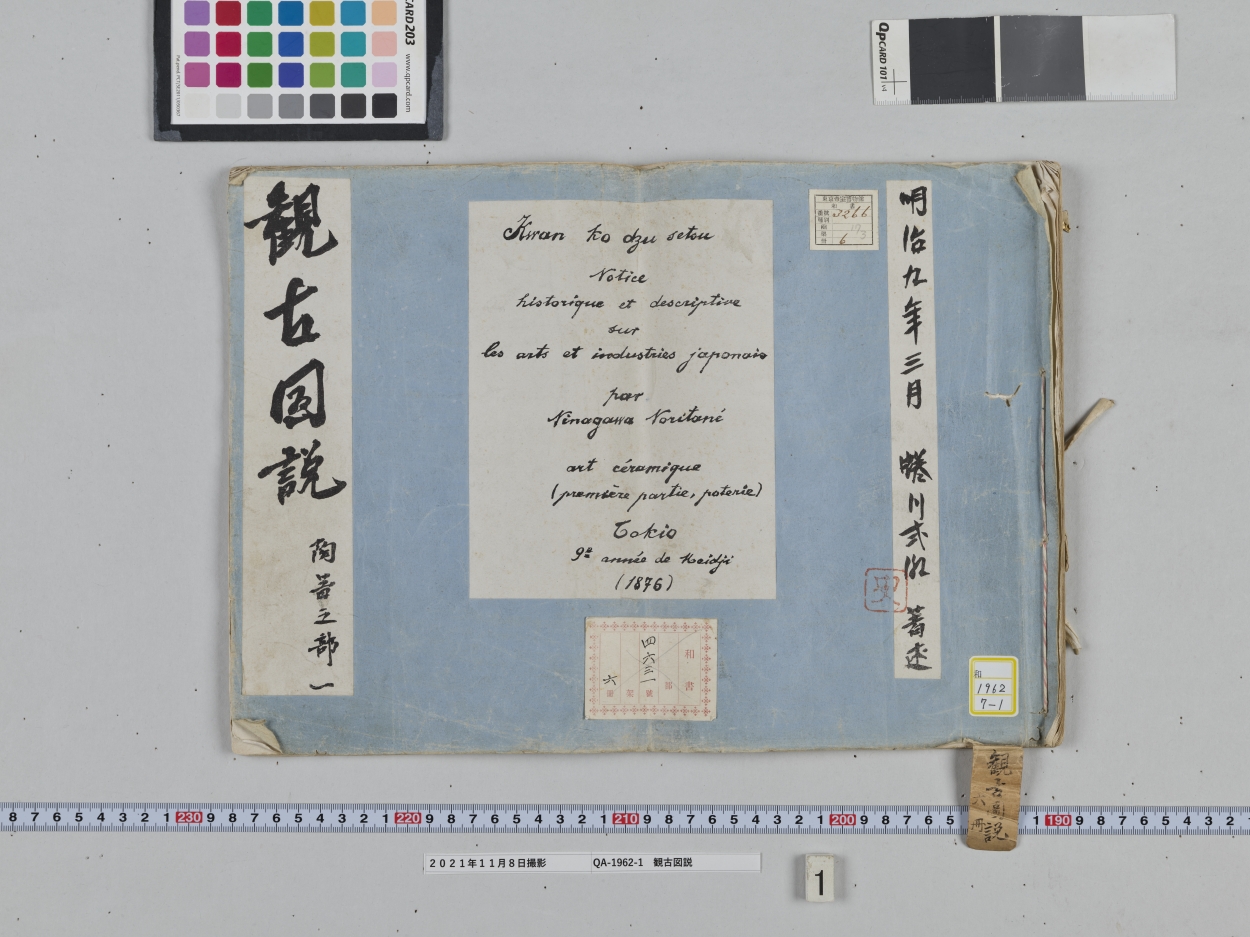 CARD 203
www.qpcard.com
QPCARD 101 v4
観古圖説
陶器之部 一
Kwan ko dzu setsu
Notice
historique et descriptive
sur
les arts et industries japonais
par
Ninagawa Noritané
art céramique
(première partie, poterie)
Tokio
9e année de Meidji
(1876)
明治九年三月 蜷川式胤 著述
和書
3266
6
和書
四六三一
部 號 架 冊
六
和
1962
7-1
観古圖説
六冊
8 7 6 5 4 3 2 1 230 9 8 7 6 5 4 3 2 1 220 9 8 7 6 5 4 3 2 1 210 9 8 7 6 5 4 3 2 1 200 9 8 7 6 5 1 190 9 8 7 6 5 4 3 2 1
2021年11月8日撮影 QA-1962-1 観古図説
1